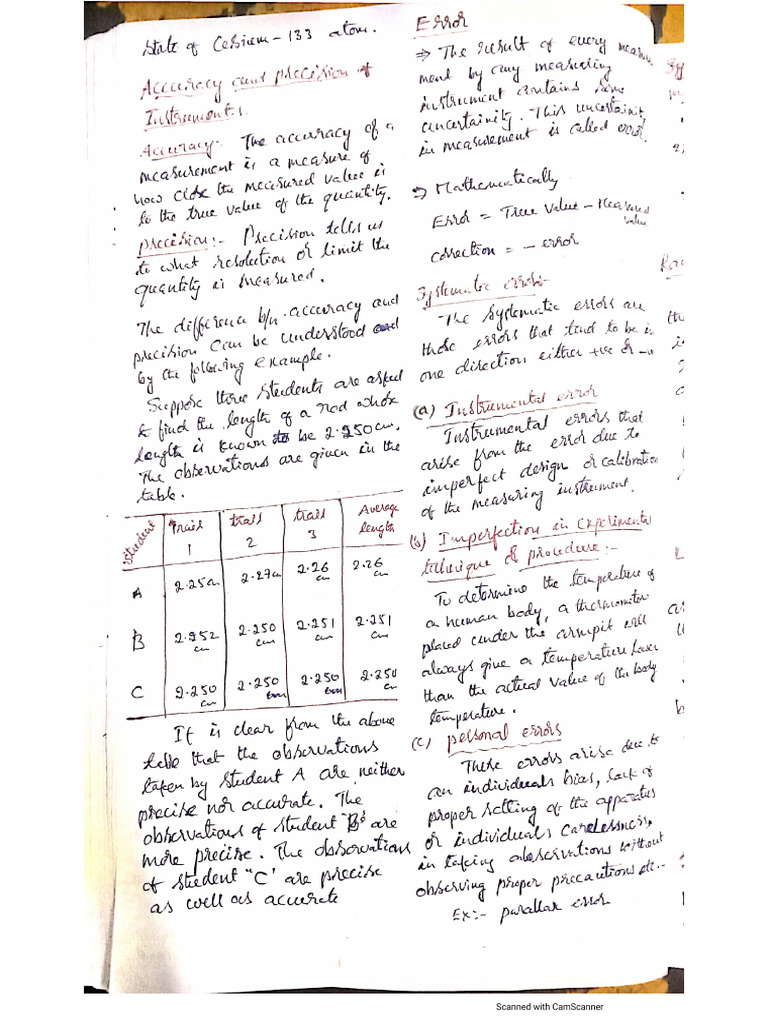 State of Cesium - 133 atom.
Accuracy and precision of
Instruments.
Accuracy:- The accuracy of a
measurement is a measure of
how close the measured value is
to the true value of the quantity.
precision:- Precision tells us
to what resolution or limit the
quantity is measured.
The difference b/n accuracy and
precision can be understood
by the following example.
Suppose three students are asked
to find the length of a rod whose
length is known to be 2.250cm.
The observations are given in the
table.
Student trail 1 trail 2 trail 3 Average length
A 2.25cm 2.27cm 2.26 cm 2.26 cm
B 2.252 cm 2.250 cm 2.251 cm 2.251 cm
C 2.250 cm 2.250 cm 2.250 cm 2.250 cm
It is clear from the above
table that the observations
taken by student A are neither
precise nor accurate. The
observations of student "B" are
more precise. The observations
of student "C' are precise
as well as accurate
Error
⇒ The result of every measure
ment by any measuring
instrument contains some
uncertainity. This uncertainit
in measurement is called error.
⇒ Mathematically
Error = True value - Measured
value
correction = - error
Systematic errors:-
The systematic errors are
those errors that tend to be in
one direction either +ve or -v
(a) Instrumental error
Instrumental errors that
arise from the error due to
imperfect design or calibration
of the measuring instrument.
(b) Imperfection in experimental
technique & procedure:-
To determine the temperature of
a human body, a thermometer
placed under the armpit will
always give a temperature lower
than the actual value of the body
temperature.
(c) personal errors
These errors arise due to
an individuals bias, lack of
proper setting of the apparatus
or individuals carelessness,
in taking observations without
observing proper precautions etc..
Ex:- parallax error
Scanned with CamScanner